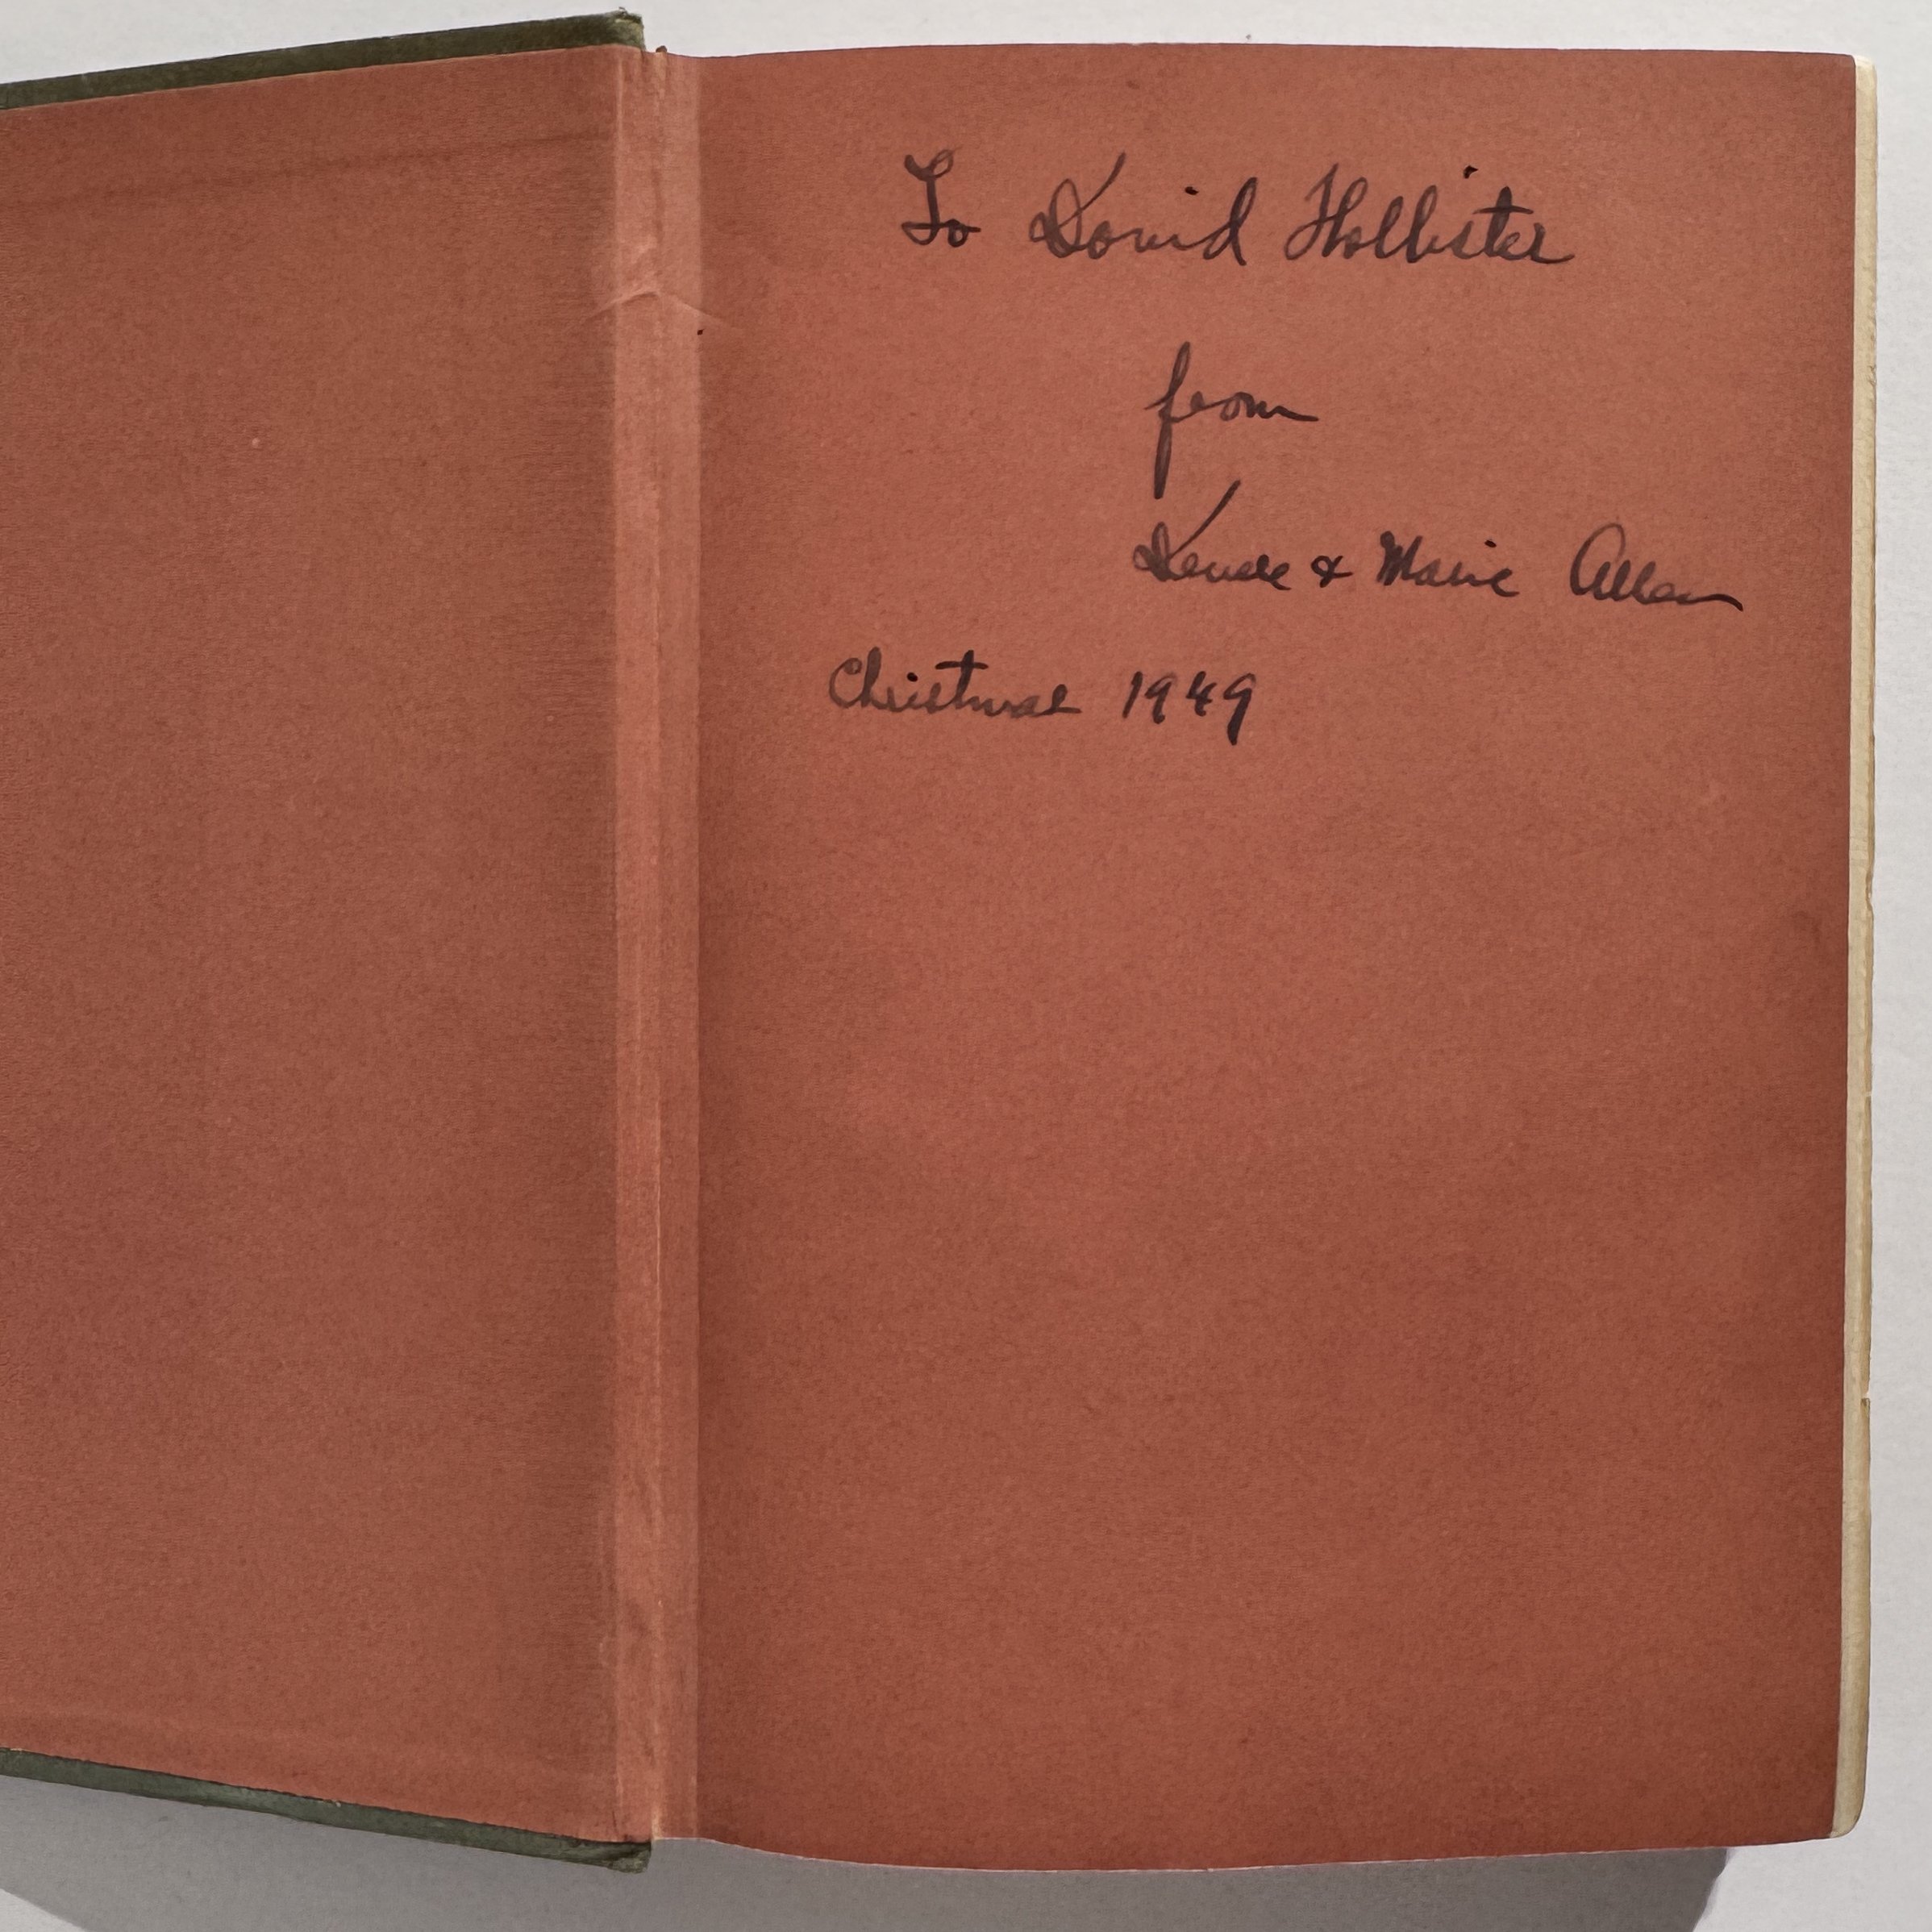 To David Hollister
from
& Marie Allen
Christmas 1949